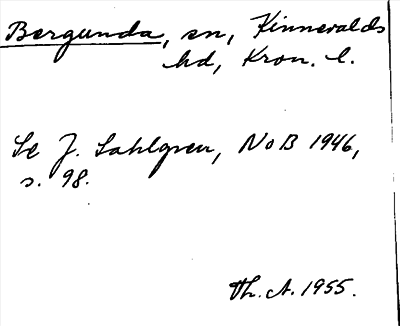 Bergunda, sn, Kinnevalds
hd, Kron. l.
Se J. Sahlgren, NoB 1946,
s. 98.
Th. A. 1955.